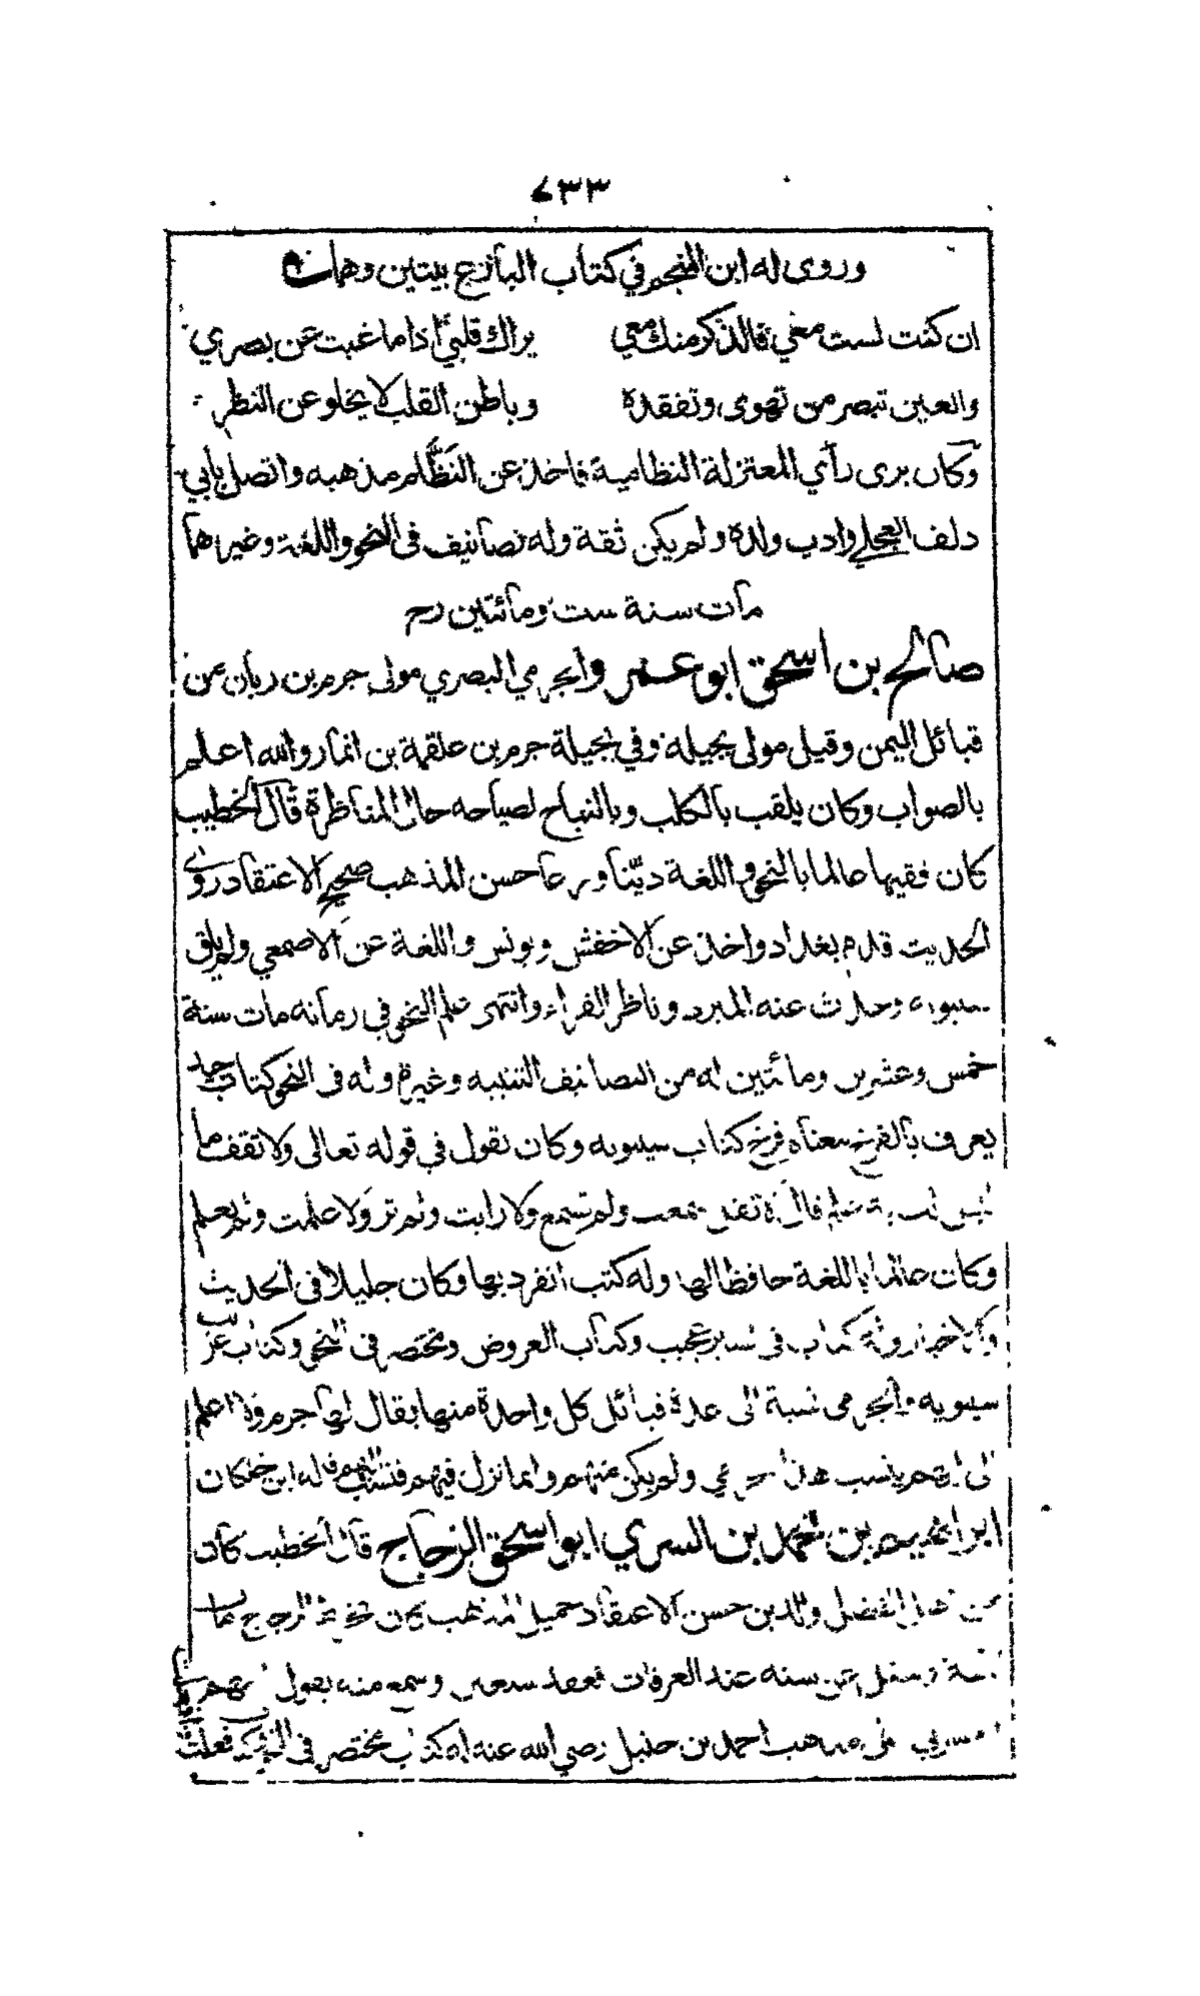 ٦٣٣
وروى له ابن المنجم في كتاب البارع بيتين وهما
ان كنت لست معي فالذكر منك معي يراك قلبي اذا ما غبت عن بصري
والعين تبصر من تهوى وتفقده وباطن القلب لا يخلو عن النظر
وكان يرى رأي المعتزلة النظامية فاخذ عن النظام مذهبه واتصل بأبي
دلف العجلي وادب ولده ولم يكن ثقة وله تصانيف في النحو واللغة وغيرهما
مات سنة ست ومائتين رح
صالح بن اسحق ابو عمرو الجرمي البصري مولى جرم بن ربان من
قبائل اليمن وقيل مولى بجيلة وفي بجيلة جرم بن علقمة بن انمار والله اعلم
بالصواب وكان يلقب بالكلب وبالنباح لصياحه حال المناظرة قال الخطيب
كان فقيها عالما بالنحو واللغة دينا ورعا حسن المذهب صحيح الاعتقاد روى
الحديث قدم بغداد واخذ عن الاخفش ويونس واللغة عن الاصمعي ولم يلق
سيبويه وحدث عنه المبرد وناظر الفراء وانتهى علم النحو في زمانه مات سنة
خمس وعشرين ومائتين له من التصانيف التنبيه وغيره وله في النحو كتاب جيد
يعرف بالفرخ معناه فرخ كتاب سيبويه وكان يقول في قوله تعالى ولا تقف ما
ليس لك به علم قال لا تقل سمعت ولم تسمع ولا رايت ولم تر ولا علمت ولم تعلم
وكان عالما باللغة حافظا لها وله كتب انفرد بها وكان جليلا في الحديث
والاخبار وله كتاب في السير عجيب وكتاب العروض ومختصر في النحو وكتاب غريب
سيبويه والجرمي نسبة الى عدة قبائل كل واحدة منها يقال لها جرم ولا اعلم
الى ايهم ينسب هذا الجرمي ولم يكن منهم وانما نزل فيهم فنسب اليهم قاله ابن خلكان
ابراهيم بن محمد بن السري ابو اسحق الزجاج قال الخطيب كان
من اهل الفضل والدين حسن الاعتقاد جميل المذهب كان يخرط الزجاج
وسئل عن سنه عند الوفات فعقد سبعين وسمع منه يقول اللهم
احشرني على مذهب احمد بن حنبل رضي الله عنه له كتاب مختصر في النحو فعلت